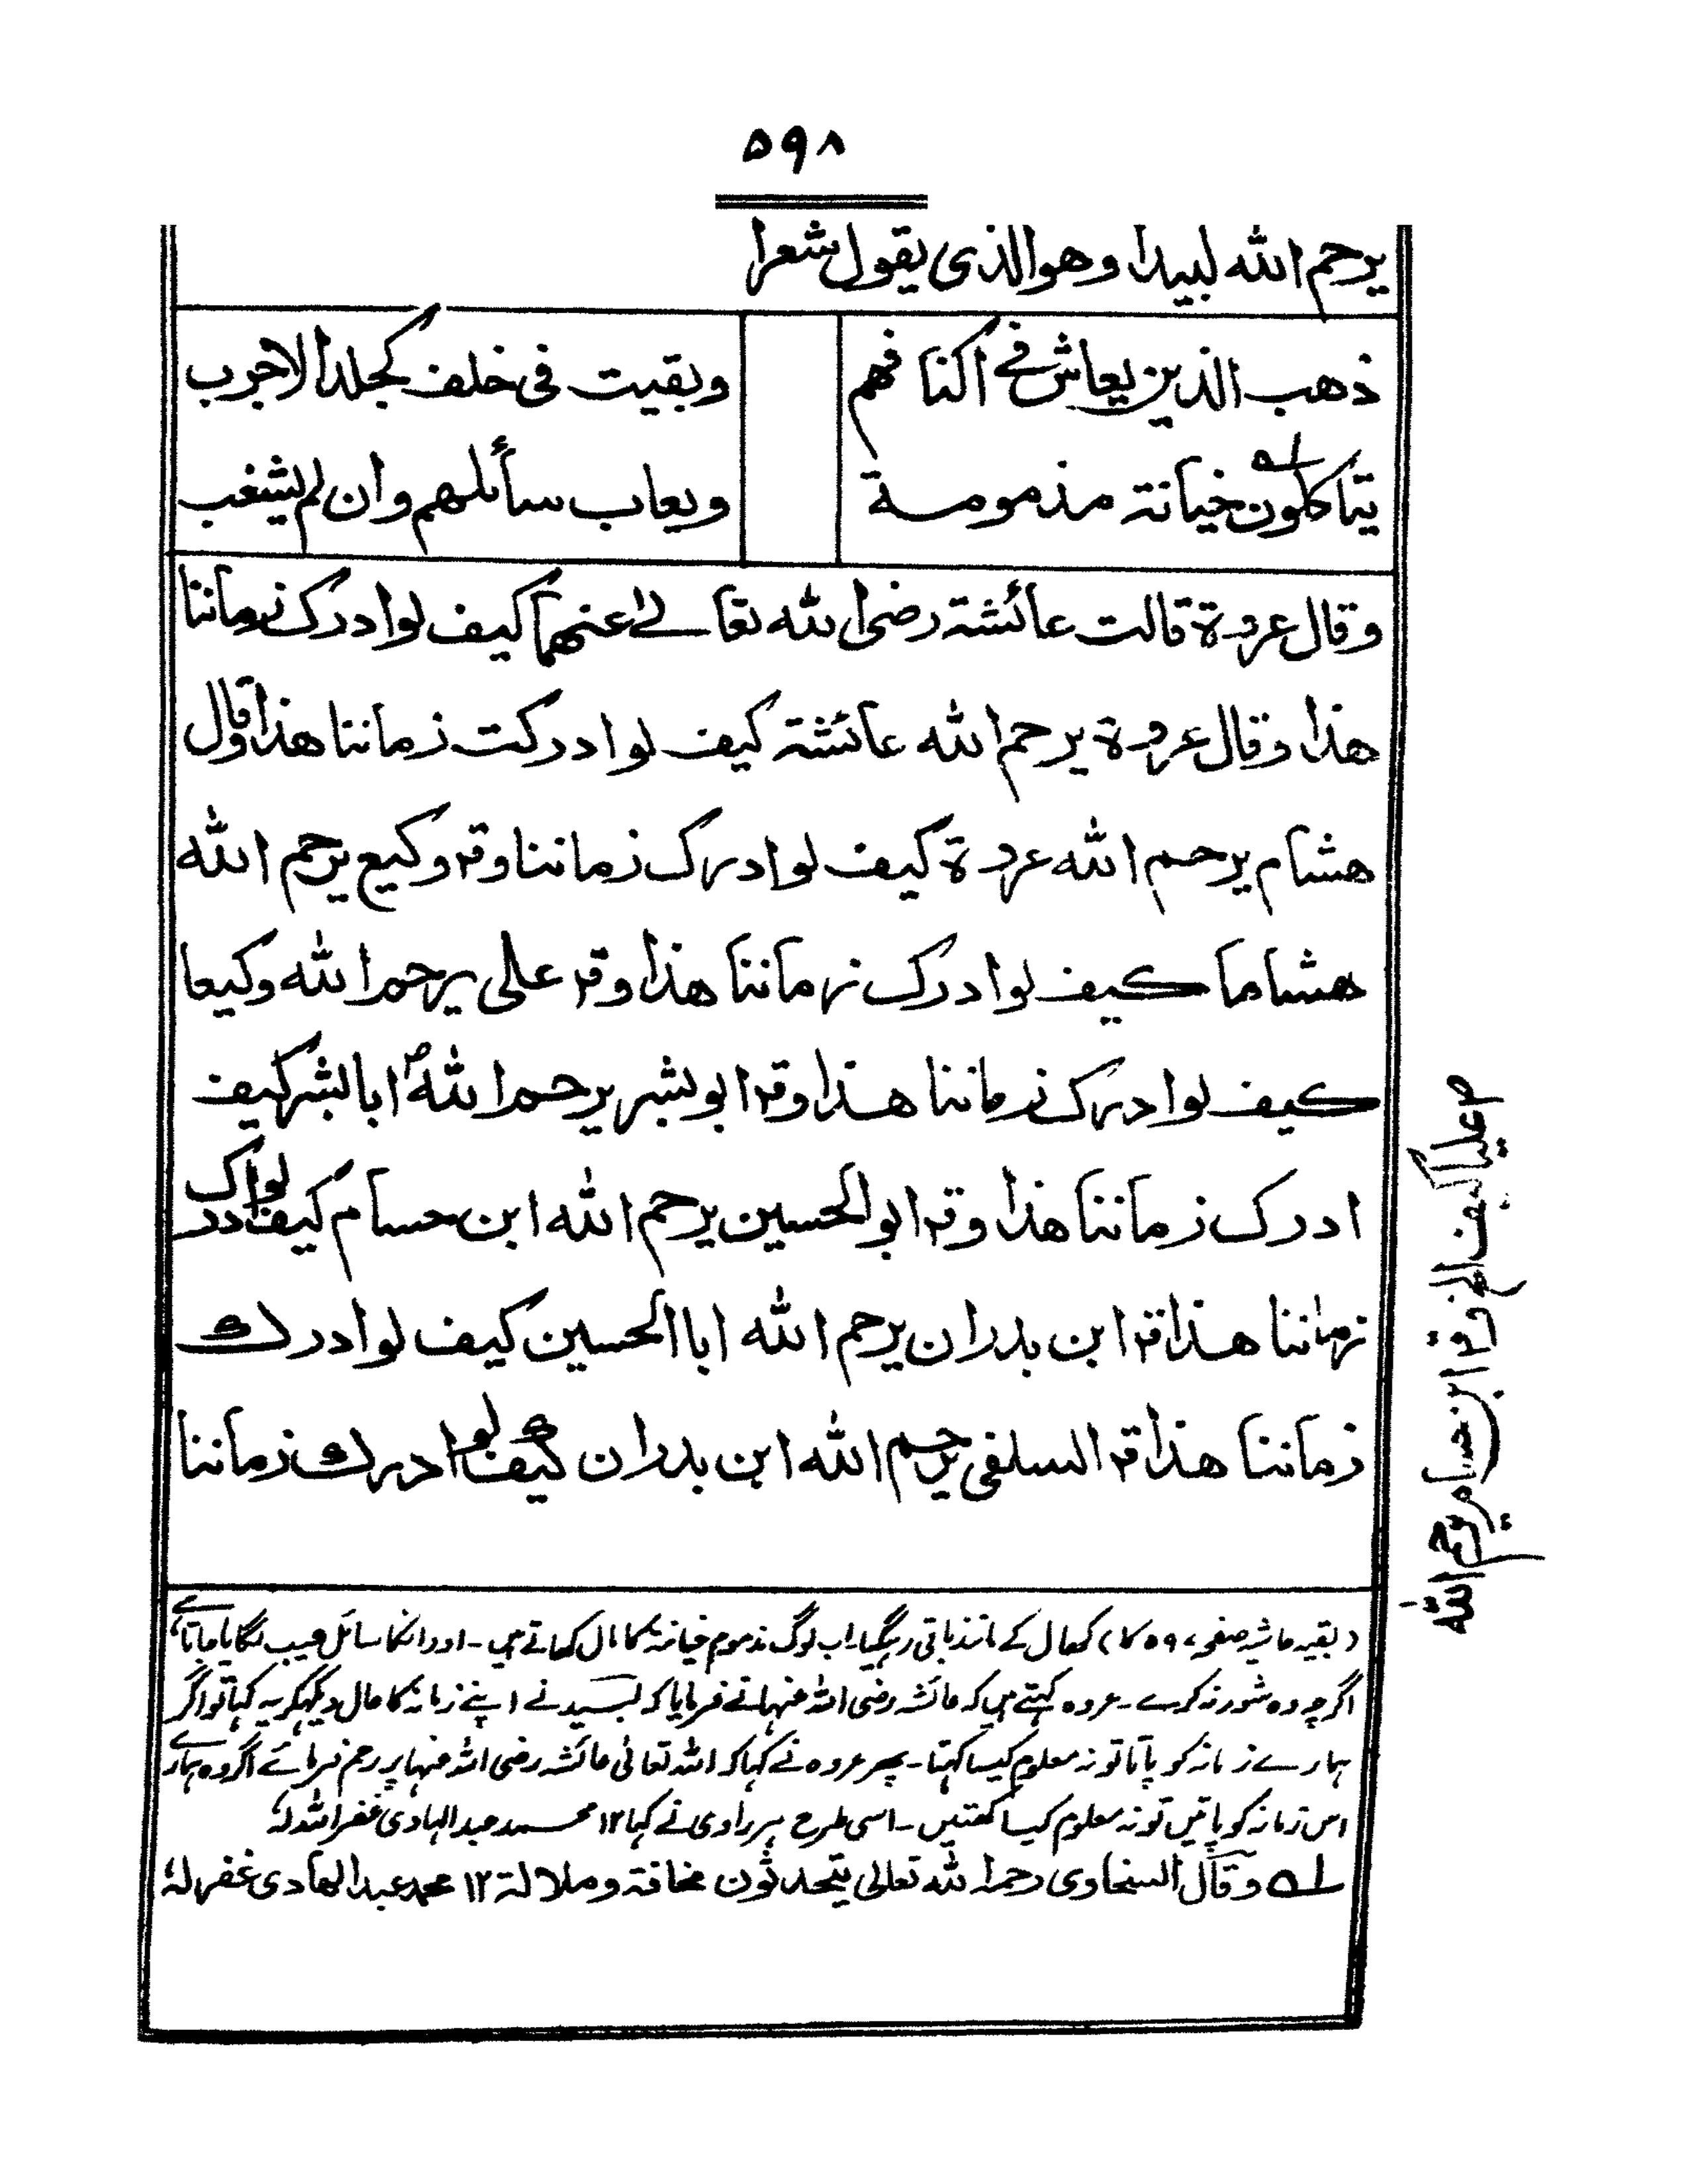 ۵۹۸
يرحم الله لبيدا وهو الذى يقول شعرا
ذهب الذين يعاش فى اكنافهم وبقيت فى خلف كجلد الاجرب
يتاكلون خيانة مذمومة ويعاب سائلهم وان لم يشغب
وقال عروة قالت عائشة رضى الله تعالے عنهما كيف لوادرك زماننا
هذا وقال عروة يرحم الله عائشة كيف لوادركت زماننا هذا وقال
هشام يرحم الله عروة كيف لوادرك زماننا وقہ وكيع يرحم الله
هشاما كيف لوادرك زماننا هذا وقہ على يرحم الله وكيعا
كيف لوادرك زماننا هذا وقہ ابوبشر يرحم الله ابابشر كيف
ادرك زماننا هذا وقہ ابو الحسين يرحم الله ابن حسام كيف لوادرك
زماننا هذا قہ ابن بدران يرحم الله ابا الحسين كيف لوادرك
زماننا هذا قہ السلفى يرحم الله ابن بدران كيف لو ادرك زماننا
عليا كيف الخ وقہ ابن حسام يرحم الله
(بقیہ حاشیہ صفحہ ۵۹۷ کا) کھال کے مانند باقی رہگیا۔ اب لوگ مذموم خیانۃ کا مال کھاتے ہیں۔ اور انکا سائل عیب لگایا جاتا ہے
اگرچہ وہ شور نہ کرے۔ عروہ کہتے ہیں کہ عائشہ رضی اللہ عنہا نے فرمایا کہ لبید نے اپنے زمانہ کا حال دیکھکر یہ کہا تو اگر
ہمارے زمانہ کو پاتا تو نہ معلوم کیسا کہتا۔ پھر عروہ نے کہا کہ اللہ تعالٰی عائشہ رضی اللہ عنہا پر رحم فرمائے اگر وہ ہمارے
اس زمانہ کو پاتیں تو نہ معلوم کیسا کھتیں۔ اسی طرح ہر راوی نے کہا ۱۲ محمد عبد الہادی غفر اللہ لہٗ
لہ وقال السخاوى رحمه الله تعالى يتحدثون مخافة وملالة ۱۲ محمد عبد الهادى غفر له